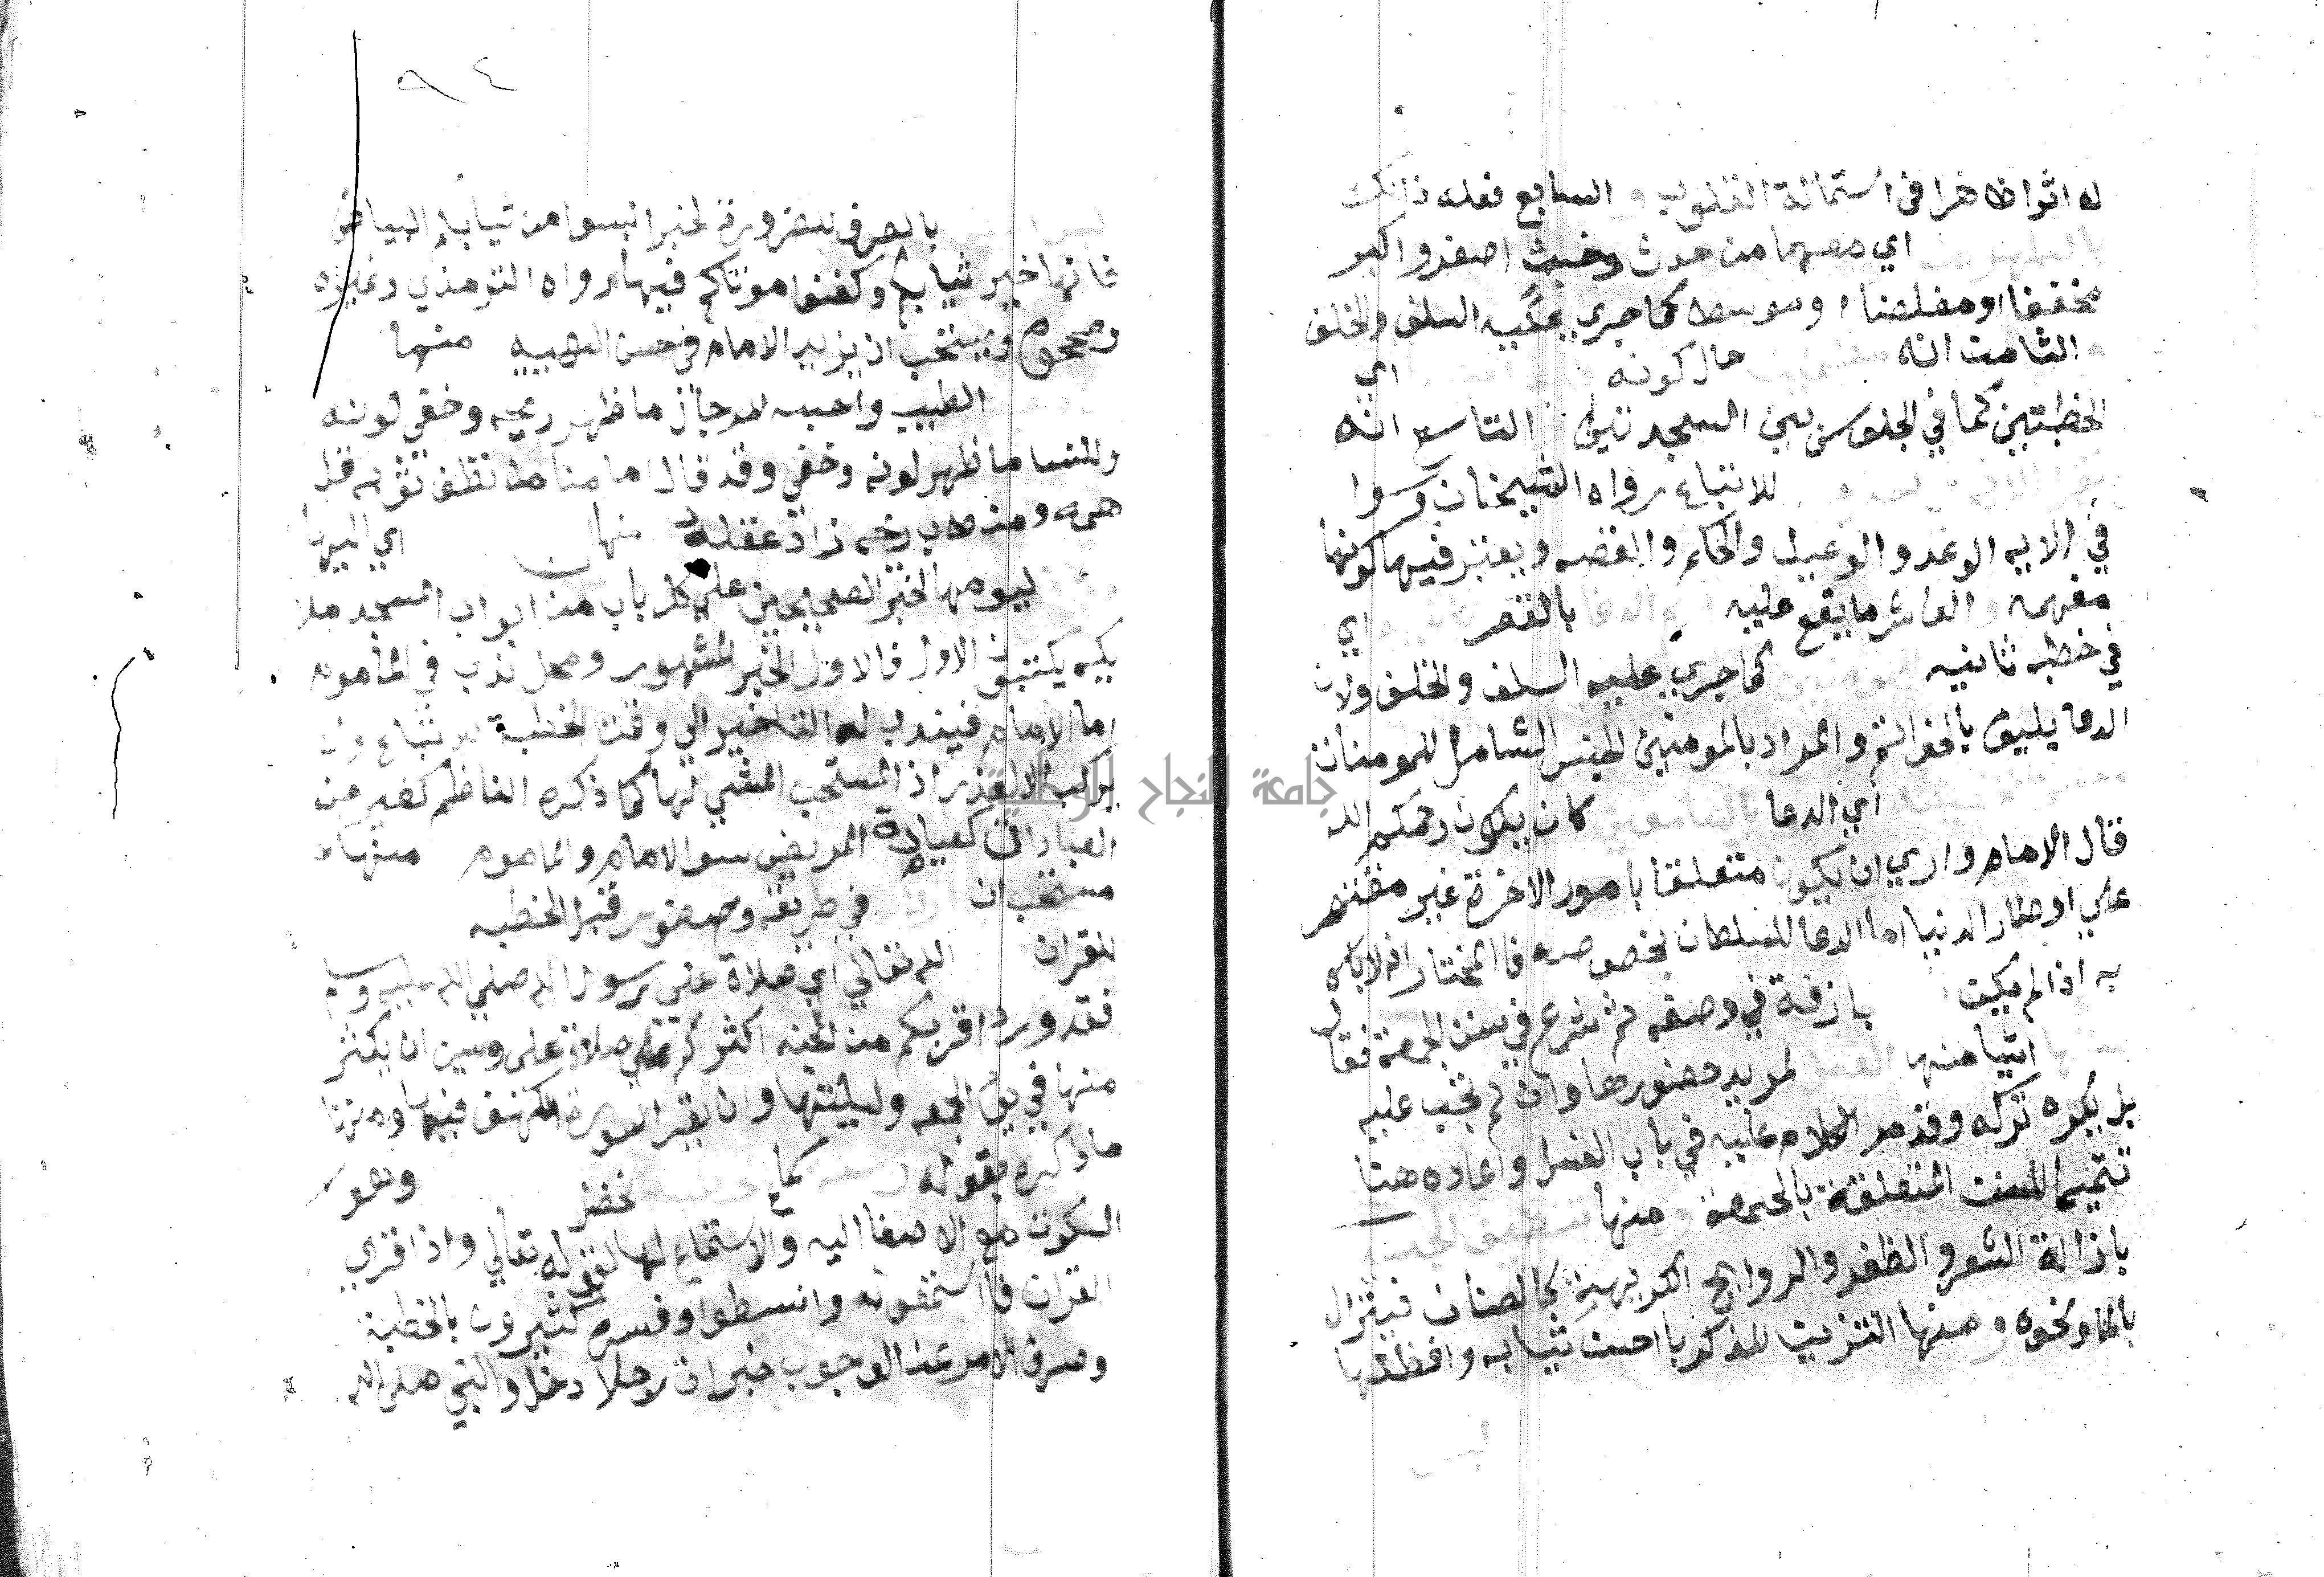 له اثرا ظاهرا في استمالة القلوب و السابع فعله ذالك
اي معهما من حدث وخبث اصغر واكبر
مخففا او مغلضا وموسط كما جري عليه السلف والخلف
الثامن انه حال كونه اي
الخطبتين كما في الجلوس بين السجدتين التاسع انه
للاتباع رواه الشيخان وسوا
في الايه الوعد والوعيد والحكم والقصه ويعتبر فيها كونها
مفهمه العاشر ما يقع عليه بالقصر اي
في خطبه ثانيه كما جري عليه السلف والخلف ولان
الدعا يليق بالخواتم والمراد بالمومنين الجنس الشامل للمومنات
اي الدعا كان يكون رحمكم الله
قال الامام واري ان يكون متعلقا بامور الاخرة غير مقتصر
علي اوطار الدنيا اما الدعا للسلطان بخصوصه فالمختار انه لا باس
به اذا لم يكن بازفة في وصفه ثم شرع في سنن الجمعة فقال
اشيا منها الغسل لمريد حضورها وان لم تجب عليه
بل يكره تركه وقد مر الكلام عليه في باب الغسل واعاده هنا
تتميما للسنن المتعلقة بالجمعة ومنها
بازالة الشعر والظفر والروايح الكريهة كالصنان فيتزال
بالماء ونحوه ومنها التزين للذكر باحسن ثيابه وافظلها
٩٤
بالصرف للضرورة لخبر البسوا من ثيابكم البياض
فانها خير ثيابكم وكفنوا موتاكم فيها رواه الترمذي وغيره
وصححوه ويستحب ان يزيد الامام في حسن الهييه منها
الطيب واحبه للرجال ما ظهر ريحه وخفي لونه
وللنسا ما ظهر لونه وخفي وقد قال امامنا من نظف ثوبه قل
همه ومن طاب ريحه زاد عقله منها اي اليها
ليومها لخبر الصحيحين علي كل باب من ابواب المسجد ملا
يكة يكتبون الاول فالاول الخبر المشهور ومحل ندب في الماموم
اما الامام فيندب له التاخير الي وقت الخطبة للاتباع ولا
يركب الا لعذر اذ المستحب المشي لها كما ذكره الناظم كغير من
العبادات كعيادة المريض سوا الامام والماموم منها
مستحب ان في طريقه وحضور قبل الخطبه
للقران الله تعالي اي صلاة علي رسول الله صلي الله عليه وسلم
فقد ورد اقربكم من الجنه اكثركم علي صلاة علي وسن ان يكثر
منها في يوم الجمعه وليلتها وان يقرا سورة الكهف فيها ومنها
ما ذكره بقوله كما نخفض وهو
السكون مع الاصغا اليه والاستماع لها لقوله تعالي واذا قري
القران فاستمعوا له وانسطوا وفسره كثيرون بالخطبة
وصرف الامر عن الوجوب خبر ان رجلا دخل والنبي صلي الله
جامعة النجاح الوطنية